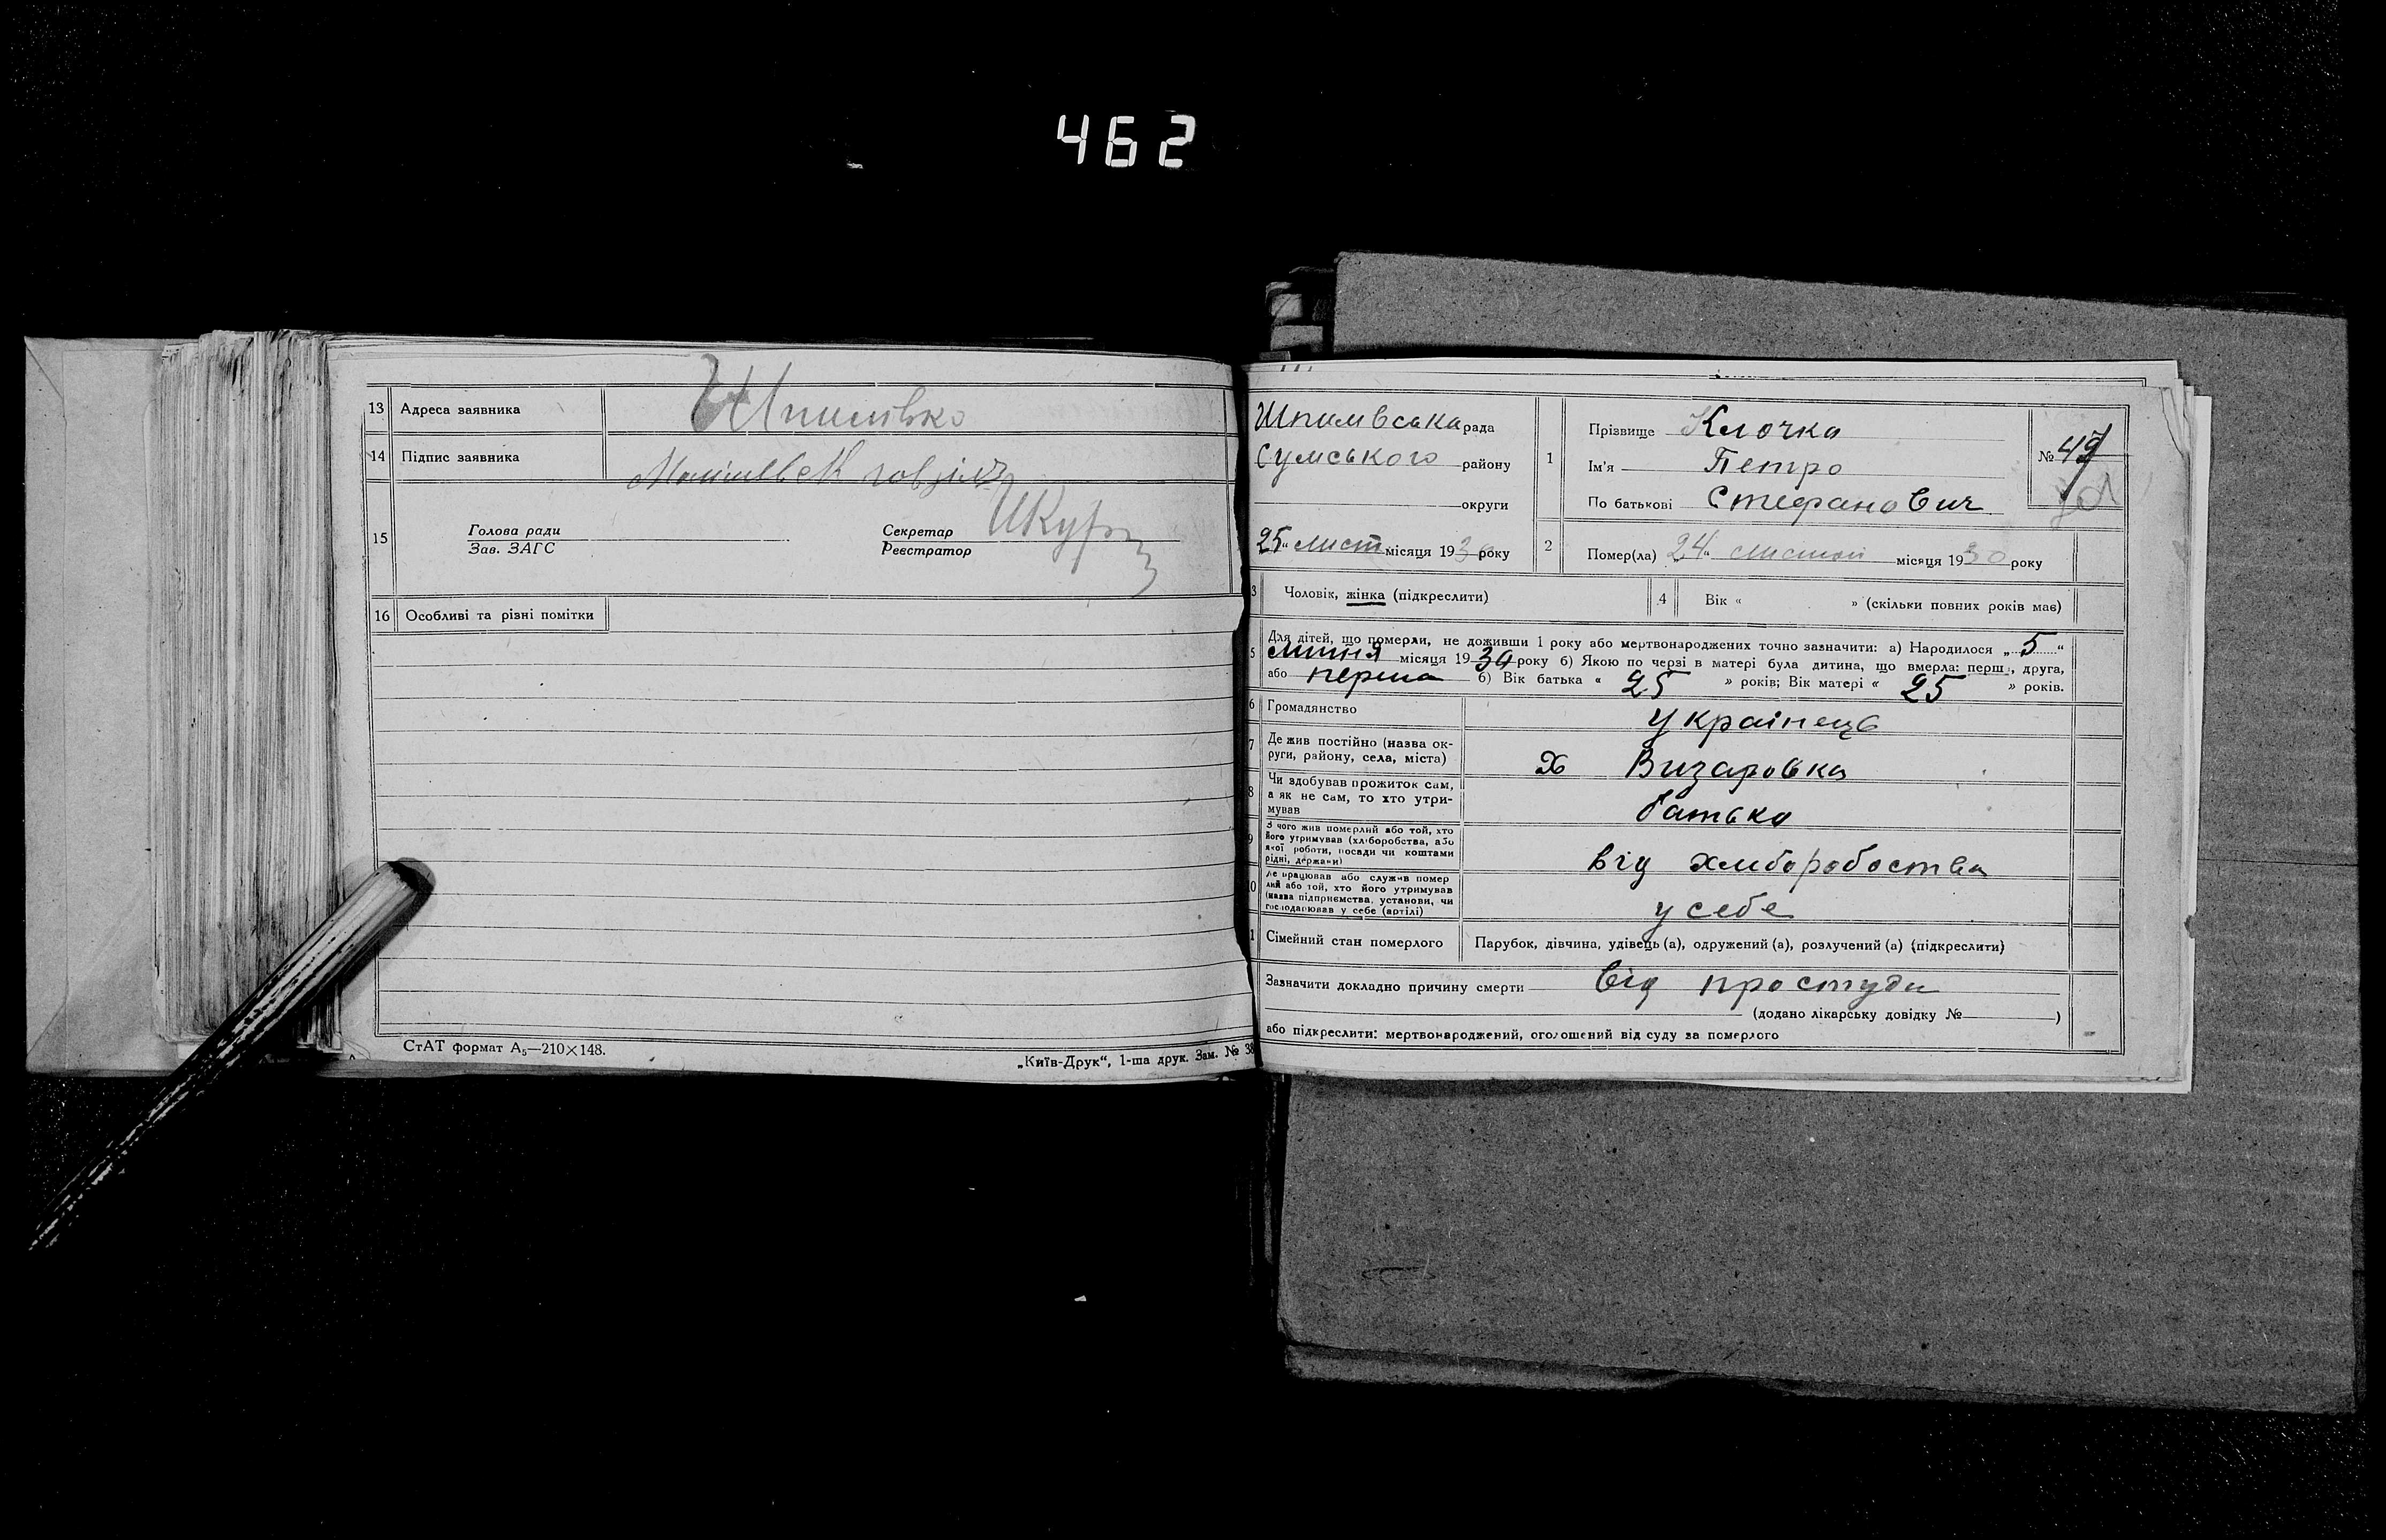 462
13 Адреса заявника Шпилівка
14 Підпис заявника
15 Голова ради
Зав. ЗАГС
Секретар
Реєстратор
16 Особливі та різні помітки
СтАТ формат А5—210×148.
„Київ-Друк“, 1-ша друк. Зам. № 38
Шпилівська рада
Сумського району
округи
25 „ лист місяця 1930 року
1 Прізвище Клочка
Ім'я Петро
По батькові Стефанович
№ 49
2 Помер(ла) 24 „ листоп місяця 1930 року
3 Чоловік, жінка (підкреслити)
4 Вік « » (скільки повних років має)
5 Для дітей, що померли, не доживши 1 року або мертвонароджених точно зазначити: а) Народилося „ 5 “
липня місяця 1930 року б) Якою по черзі в матері була дитина, що вмерла: перша, друга,
або перша б) Вік батька « 25 » років; Вік матері « 25 » років.
6 Громадянство українець
7 Де жив постійно (назва округи, району, села, міста) х Визаровка
8 Чи здобував прожиток сам, а як не сам, то хто утримував батько
9 З чого жив померлий або той, хто його утримував (хліборобства, або якої роботи, посади чи коштами рідні, держави) від хліборобоства
10 Де працював або служив померлий або той, хто його утримував (назва підприємства, установи, чи господарював у себе (артілі) у себе
11 Сімейний стан померлого Парубок, дівчина, удівець (а), одружений (а), розлучений (а) (підкреслити)
Зазначити докладно причину смерти від простуди
(додано лікарську довідку № )
або підкреслити: мертвонароджений, оголошений від суду за померлого